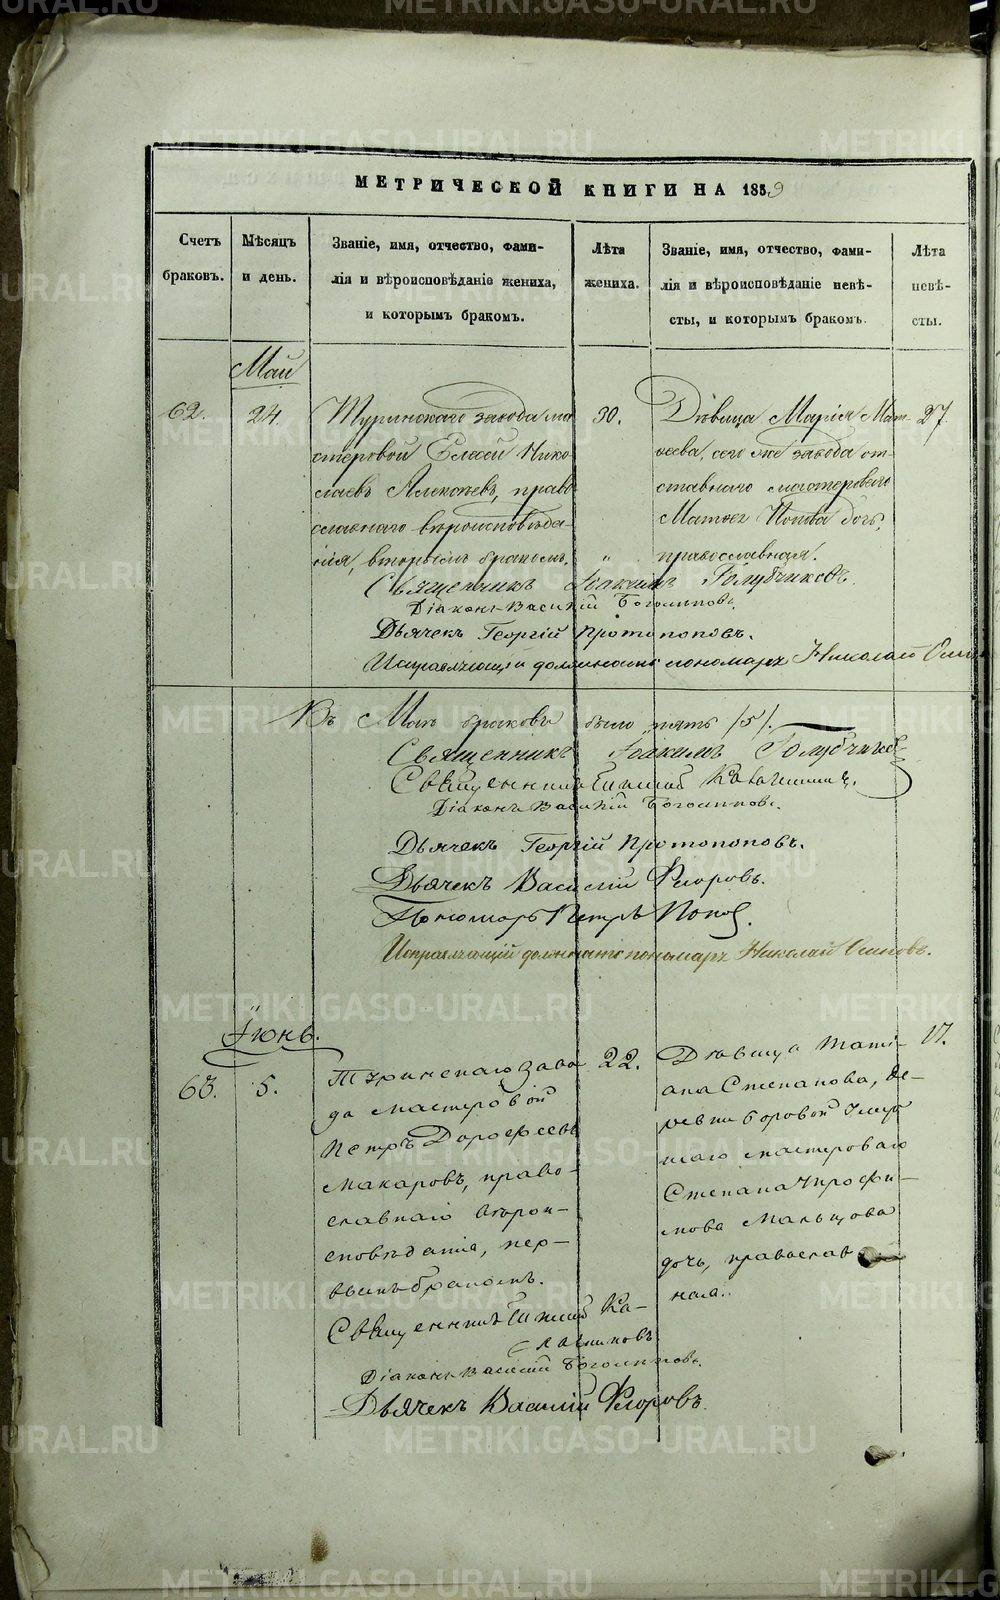 МЕТРИЧЕСКОЙ КНИГИ НА 1859
Счетъ браковъ.
Мѣсяцъ и день.
Званіе, имя, отчество, фами-
лія и вѣроисповѣданіе жениха,
и которымъ бракомъ.
Лѣта жениха.
Званіе, имя, отчество, фами-
лія и вѣроисповѣданіе невѣ-
сты, и которымъ бракомъ.
Лѣта невѣ-
сты.
Май
62.
24.
Туринскаго завода ма
стеровой Елсей Нико
лаевъ Алексѣевъ, право
славнаго вѣроисповѣда-
нія, вторымъ бракомъ.
30.
"
Дѣвица Марія Мат-
ѳеева, сего же завода от-
ставнаго мастероваго
Матѳея Попова дочь,
православная.
27.
Священникъ Іоакимъ Голубчиковъ.
Діаконъ Василій Боголѣповъ.
Дьячекъ Георгій Протопоповъ.
Исправляющій должность пономаря Николай
Въ Маѣ браковъ было пять /5/.
Священникъ Іоакимъ Голубчиковъ
Священникъ
Діаконъ Василій Боголѣповъ.
Дьячекъ Георгій Протопоповъ.
Дьячекъ Василій Флоровъ.
Пономарь Петръ Поповъ.
Исправляющій должность пономаря Николай Осиповъ.
Іюнь.
63.
5.
Туринскаго заво
да мастеровой
Петръ Дороѳеевъ
Макаровъ, право-
славнаго вѣрои-
сповѣданія, пер-
вымъ бракомъ.
22.
Дѣвица Тати-
ана Степанова, де-
ревни Боровой умер
шаго мастероваго
Степана
Мальцова
дочь, православ
ная.
17.
Священникъ
Діаконъ Василій Боголѣповъ.
Дьячекъ Василій Флоровъ.
METRIKI.GASO-URAL.RU